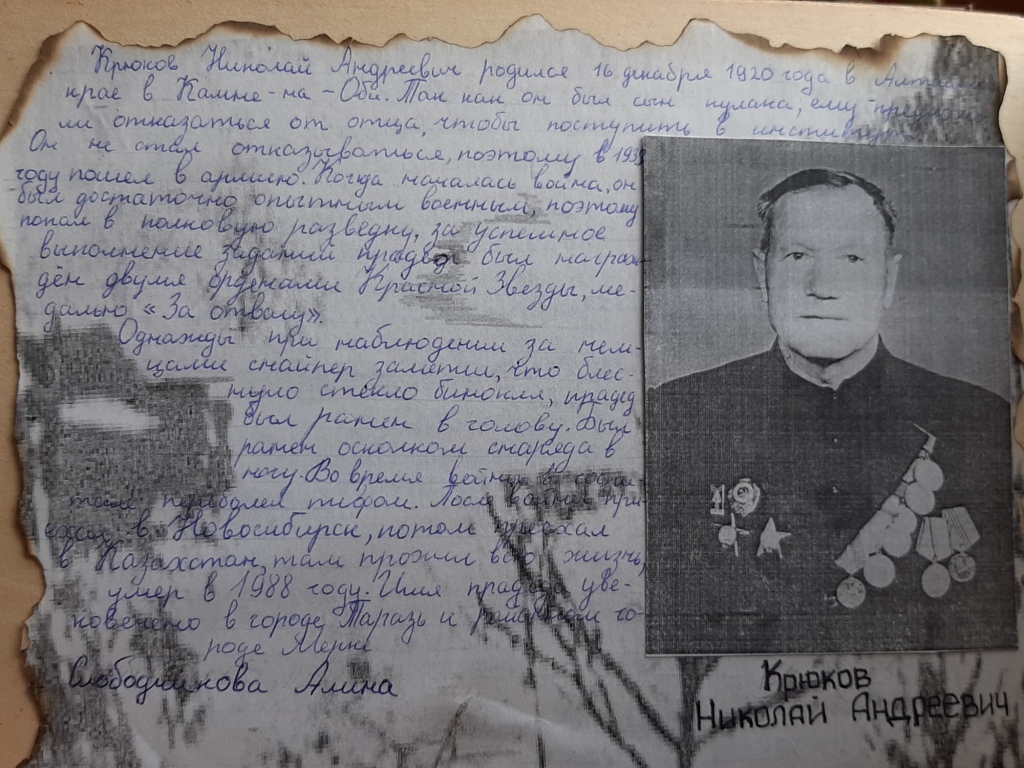 Крюков Николай Андреевич родился 16 декабря 1920 года в
крае в Камне-на-Оби. Так как он был сын кулака, ему
ли отказаться от отца, чтобы поступить в институт.
Он не стал отказываться, поэтому в
году пошел в армию. Когда началась война, он
был достаточно опытным военным, поэтому
попал в полковую разведку, за успешное
выполнение заданий прадед был награж-
дён двумя орденами Красной Звезды, ме-
далью «За отвагу».
Однажды при наблюдении за нем-
цами снайпер заметил, что блес-
нуло стекло бинокля, прадед
был ранен в голову. Был
ранен осколком снаряда в
ногу. Во время войны в госпи-
тале переболел тифом. После войны при-
ехал в Новосибирск, потом
в Казахстан, там прожил всю жизнь,
умер в 1988 году. Имя прадеда уве-
ковечено в городе Таразь и го-
роде Мерке
Алина
Крюков
Николай Андреевич